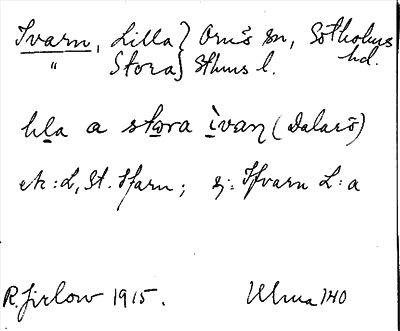 Ivarn, Lilla } Ornö sn, Sotholms
" Stora } Sthms l. hd.
lıla a stora ìvaṇ (Dalarö)
ek: L, St. Ifarn; sj: Ifvarn L:a
R. Jirlow 1915. Ulma 140